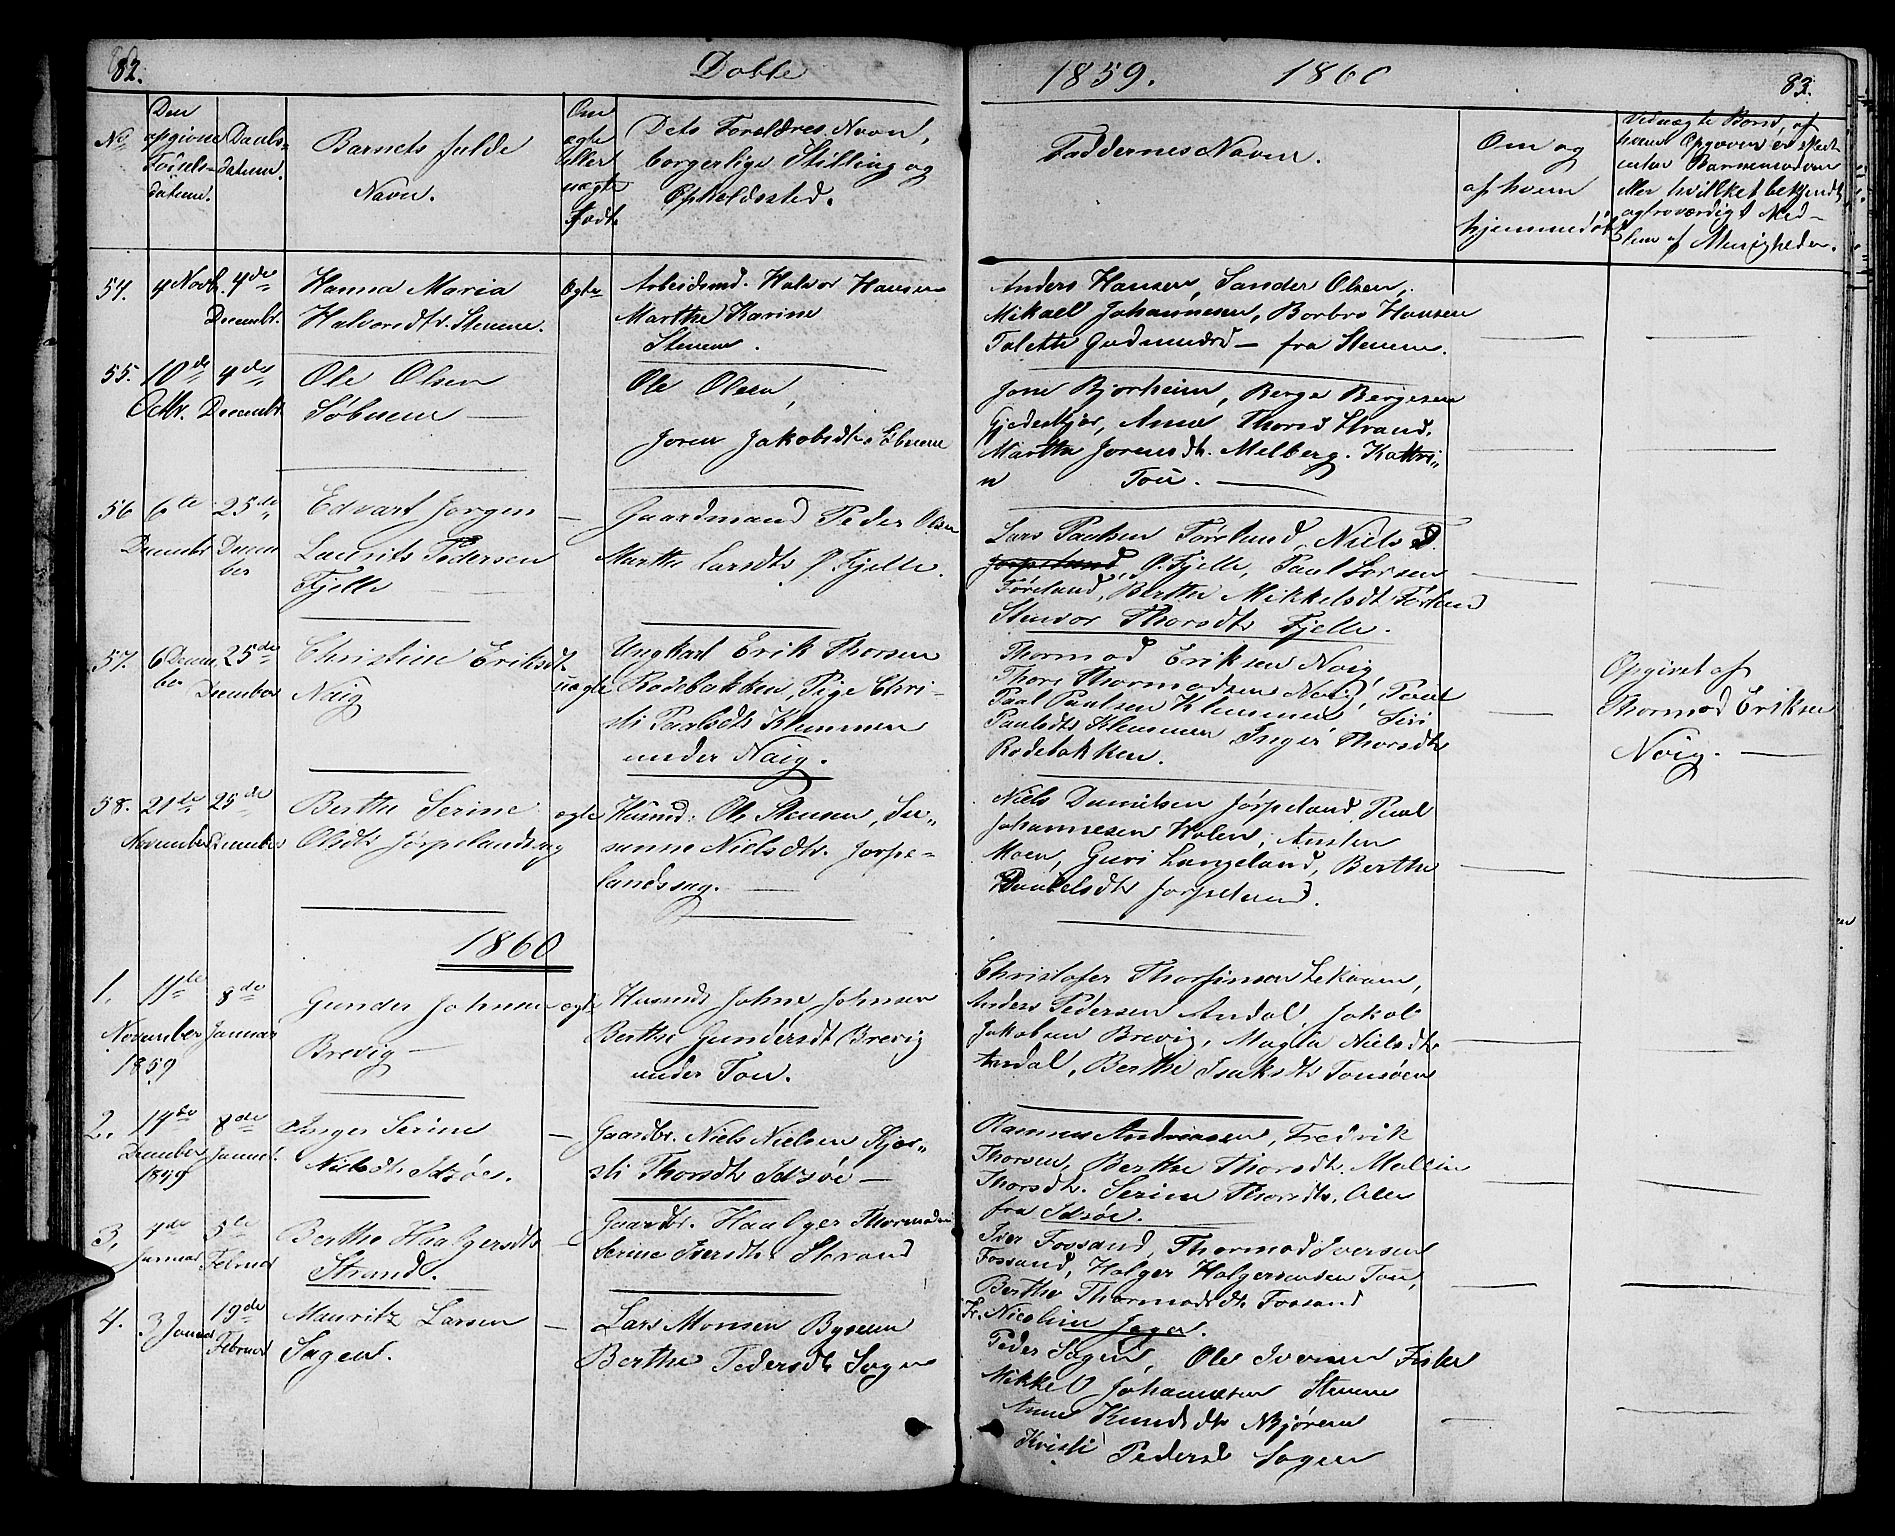 82.
Døbte
1859. 1860
83.
No
Den
opgivne
Fødsels-
datum.
Daabs-
datum.
Barnets fulde
Navn.
Om
ægte
eller
uægte
Født.
Dets Forældres Navn,
borgerlige Stilling og
Opholdssted.
Faddernes Navn.
Om og
af hvem
hjemmedøbt
Ved uægte Børn, af
hvem Opgaven er skeet
enten Barnemoderen
eller hvilket bekjendt
og troværdigt Med-
lem af Menigheden.
54.
4 Novb.
4de
Decembr.
Hanna Maria
Halvorsdtr. Stenene.
Ægte
Arbeidsmd. Halvor Hansen
Marthe Karine
Stenene.
Anders Hansen, Sander Olsen,
Mikael Johannesen, Borbro Hansen
Talette Gudmundsd — fra Stenene.
55.
10de
Octbr.
4de
Decembr.
Ole Olsen
Søbuene —
Ole Olsen,
Joren Jakobsdtr. Søbuene
Jone Bjorheim, Berge Bergesen
Gjedeskjær, Anne Thorsd Strand.
Marthe Jorensdtr. Melberg. Kathri-
n Tou. —
56
6te
Decembr
25de
Decem
ber
Edvart Jørgen
Laurits Pedersen
Fjelle
—
Gaardmand Peder Olsen
Marthe Larsdtr Ø. Fjelle.
Lars Paulsen Førland, Niels P.
Ø. Fjelle, Paul Larsen
Føreland, Berthe Mikkelsdt Førland
Stenvor Thorsdtr Fjelle.
57.
6 Decem
ber
25de
December
Christine Eriksdt.
Naig
uægte
Ungkarl Erik Thorsen
Rødebakken, Pige Chri-
sti Paulsdtr Klemmen
under Naig.
Thormod Eriksen Noig,
Thore Thormodsen Noig,
Paal Paulsen Klemmen, Siri
Paulsdtr Klemmen Inger Thorsdtr
Rødebakken.
Opgivet af
Thormod Eriksen
Noig. —
58.
21de
November
25de
December
Berthe Serine
Olsdtr Jørpelandsvag
ægte
Husmd: Ole Stensen, Su-
sanne Nielsdtr. Jørpe-
landsvag. —
Niels Danielsen Jørpeland, Paul
Johannesen Holen, Austen
Moen, Guri Langeland, Berthe
Danielsdtr Jørpeland.
1860
1.
11te
November
1859
8de
Januar
Gunder Johnsen
Brevig —
ægte
Husmd Johne Johnsen
Berthe Gundersdt Brevig
under Tou.
Christofer Thorfinsen Lekvam,
Anders Pedersen Andal, Jakob
Jakobsen Brevig, Magla Nielsdtr
Andal, Berthe Isaksdtr Tousøen
2.
14de
December
1859
8de
Januar.
Inger Serine
Nielsdtr. Idsøe.
—
Gaardbr. Niels Nielsen Kjer-
sti Thorsdtr Idsøe —
Rasmus Andreasen, Fredrik
Thorsen, Berthe Thorsdtr. Mallin
Thorsdtr. Serine Thorsdtr. Alle
fra Idsøe.
3.
4de
Januar
5te
Februar
Berthe Haalgersdtr
Strand.
—
Gaardbr. Haalger Thormodsen
Serine Iversdtr. Strand
Iver Fossand, Thormod Iversen
Fossand, Holger Holgersensen Tou,
Berthe Thormodsdtr. Fossand
Fr. Nicoline Jager.
4.
3 Januar
19de
Februar
Mauritz Larsen
Sagen.
—
Lars Monsen Byseen
Berthe Pedersdtr. Sagen
Peder Sagen, Ole Iversen Fisker
Mikkel Johannesen Stenene
Anne Knudsdtr Nbjøren
Kristi Pedersd Sagen